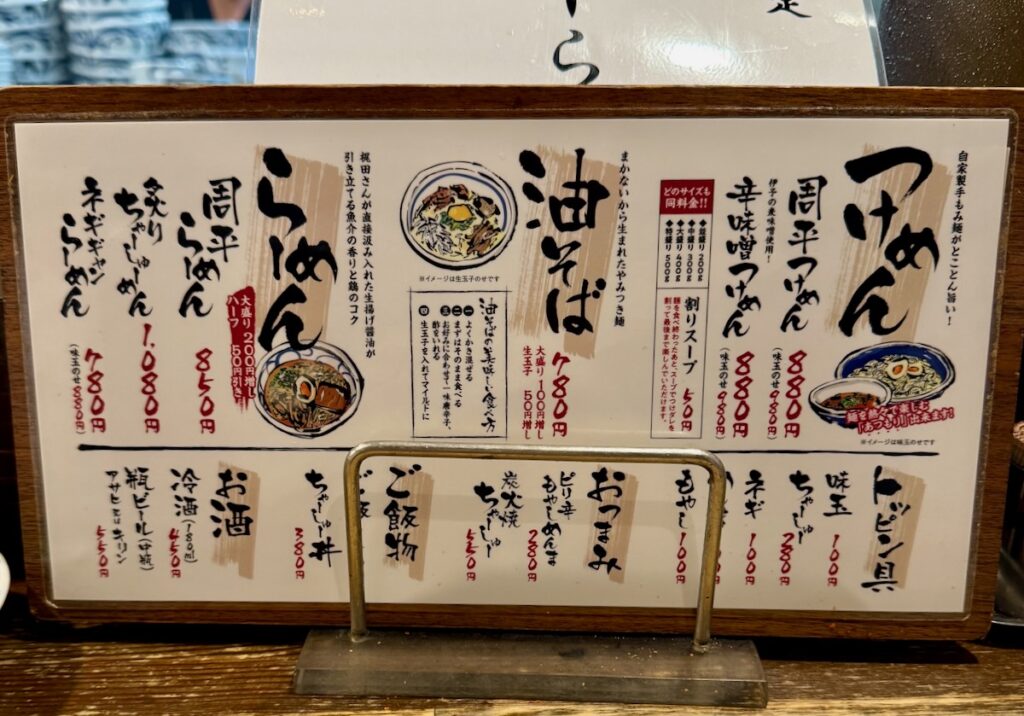 ら
定
自家製手もみ麺がとことん旨い!
つけめん
周平つけめん
880円
(味玉のせ980円)
伊予の麦味噌使用!
辛味噌つけめん
880円
(味玉のせ980円)
どのサイズも
同料金!!
◆並盛り 200g
◆中盛り 300g
◆大盛り 400g
◆特盛り 500g
割りスープ 50円
麺を食べ終わったあと、スープでつけダレを
割って最後まで楽しんでいただけます。
麺を熱々で楽しむ
「あつもり」出来ます!
※イメージは味玉のせです
まかないから生まれたやみつき麺
油そば
780円
大盛り 100円増し
生玉子 50円増し
※イメージは生玉子のせです
油そばの美味しい食べ方
一 よくかき混ぜる
二 まずはそのまま食べる
三 お好みに合わせて一味唐辛子、
酢をいれる
四 生玉子を入れてマイルドに
梶田さんが直接汲み入れた生揚げ醤油が
引き立てる魚介の香りと鶏のコク
らーめん
大盛り 200円増し
ハーフ 50円引き
周平らーめん
850円
炙りちゃーしゅーめん
1,080円
ネギギャンらーめん
780円
(味玉のせ880円)
トッピン具
味玉
100円
ちゃーしゅー
280円
ネギ
100円
もやし
100円
おつまみ
ピリ辛
もやしめんま
280円
炭火焼
ちゃーしゅー
550円
ご飯物
ご飯
ちゃーしゅー丼
380円
お酒
冷酒(180ml)
450円
瓶ビール(中瓶)
アサヒまたはキリン
550円